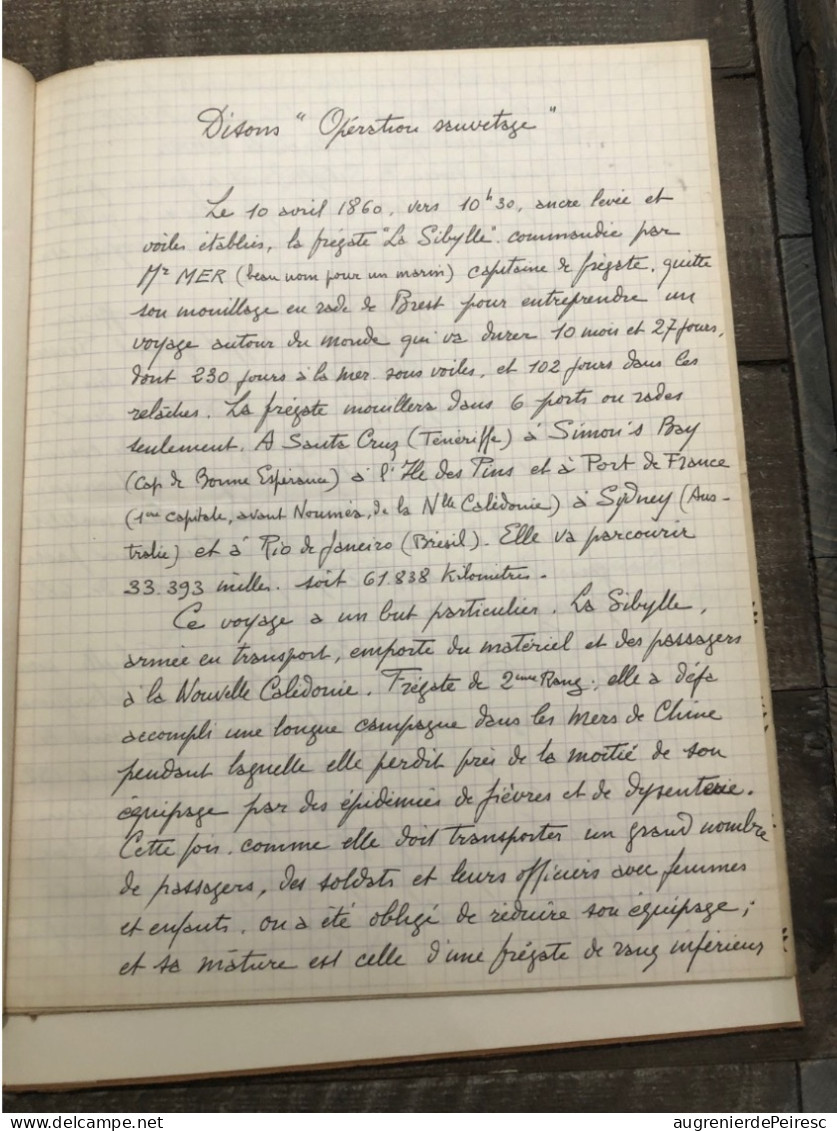 Disons "Opération sauvetage"
Le 10 avril 1860, vers 10h30, ancre levée et
voiles établies, la frégate "La Sibylle" commandée par
Mr MER (beau nom pour un marin) capitaine de frégate, quitte
son mouillage en rade de Brest pour entreprendre un
voyage autour du monde qui va durer 10 mois et 27 jours,
dont 230 jours à la mer sous voiles, et 102 jours dans les
relâches. La frégate mouillera dans 6 ports ou rades
seulement. A Santa Cruz (Ténériffe) à Simon's Bay
(Cap de Bonne Espérance) à l'Ile des Pins et à Port de France
(1ere capitale, avant Nouméa, de la Nlle Calédonie) à Sydney (Aus-
tralie) et à Rio de Janeiro (Brésil). Elle va parcourir
33.393 milles. soit 61.838 Kilomètres.
Ce voyage a un but particulier. La Sibylle,
armée en transport, emporte du matériel et des passagers
à la Nouvelle Calédonie. Frégate de 2eme Rang, elle a déjà
accompli une longue campagne dans les Mers de Chine
pendant laquelle elle perdit près de la moitié de son
équipage par des épidémies de fièvres et de dysenterie.
Cette fois, comme elle doit transporter un grand nombre
de passagers, des soldats et leurs officiers avec femmes
et enfants, on a été obligé de réduire son équipage ;
et sa mâture est celle d'une frégate de rang inférieur
delcampe.net
augrenierdePeiresc